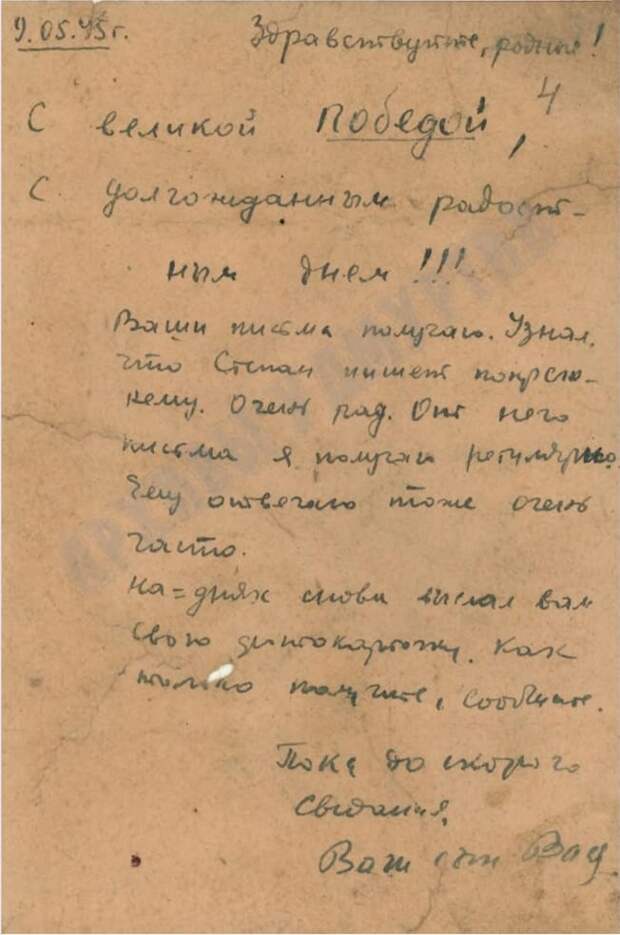 9.05.45г. Здравствуйте, родные!
4
С великой Победой,
С долгожданным радост-
ным днем!!!
Ваши письма получаю. Узнал,
что Степан пишет
нему. Очень рад. От него
письма я получаю регулярно.
Ему отвечаю тоже очень
часто.
На=днях снова выслал вам
свою фотокарточку. Как
только получите, сообщите.
Пока до скорого
свидания,
Ваш сын Вад